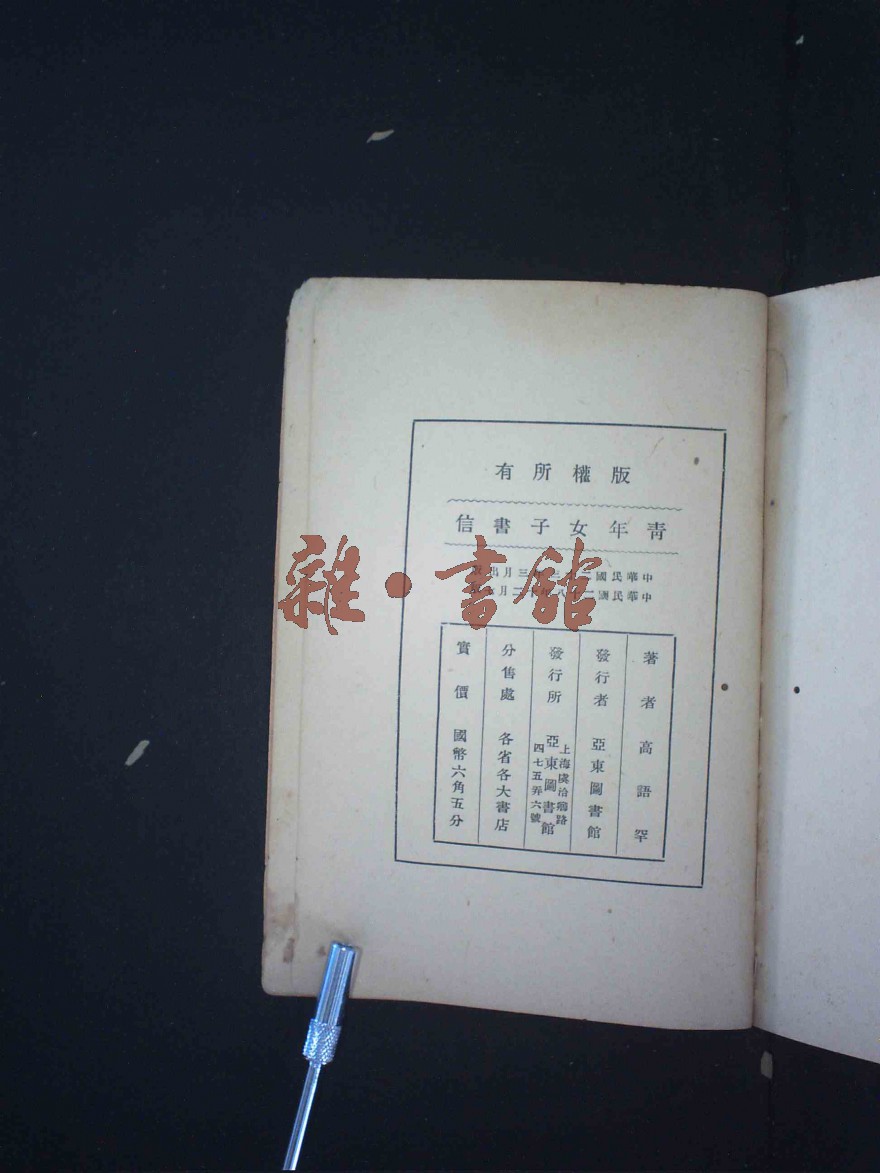 版權所有
青年女子書信
中華民國二十三年三月出版
中華民國二十八年十二月版
著者 高語罕
發行者 亞東圖書館
發行所 亞東圖書館
上海虞洽卿路
四七五弄六號
分售處 各省各大書店
實價 國幣六角五分
雜·書館